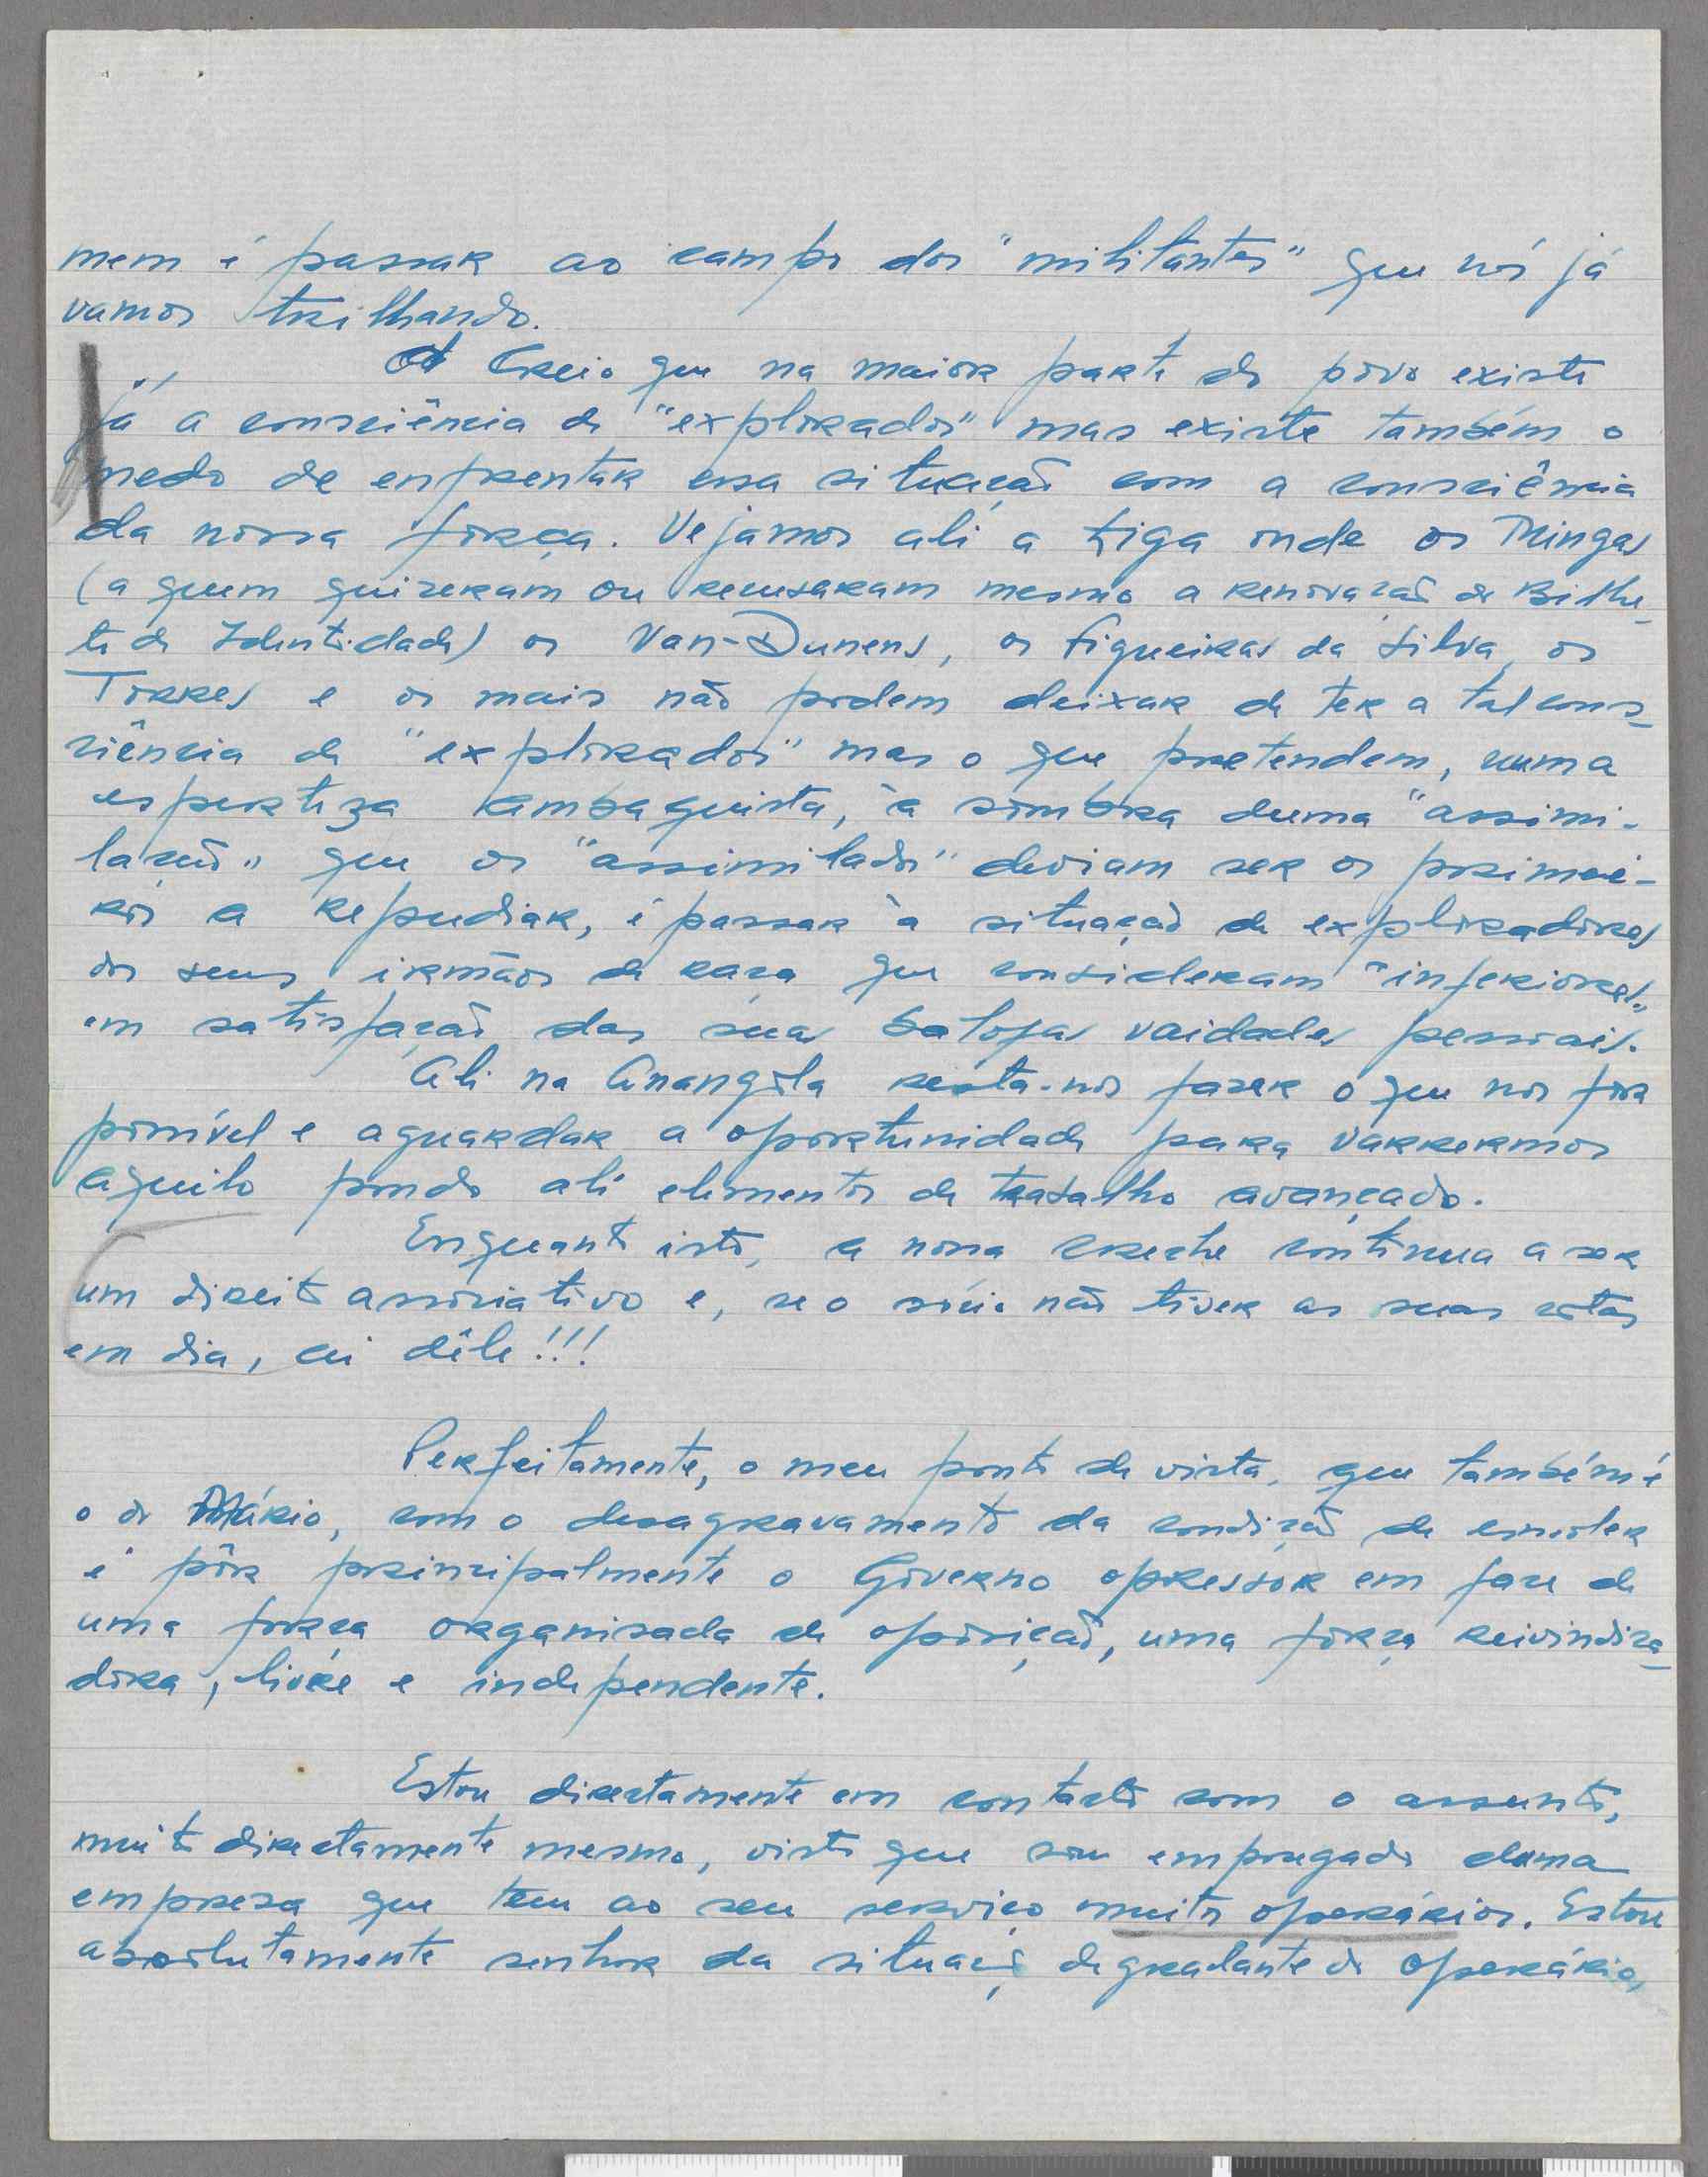 mem é passar ao campo dos "militantes" que nós já
vamos trilhando.
Creio que na maior parte do povo existe
já a consciência de "explorados" mas existe também o
medo de enfrentar essa situação com a consciência
da nossa fôrça. Vejamos ali a Liga onde os Mingas
(a quem quizeram ou recusaram mesmo a renovação do Bilhe-
te de Identidade) os Van-Dunens, os Figueiras da Silva, os
Torres e os mais não podem deixar de ter a tal cons-
ciência de "explorados" mas o que pretendem, numa
esperteza ambaquista, à sombra duma "assimi-
lação" que os "assimilados" deviam ser os primei-
ros a repudiar, é passar à situação de exploradores
dos seus irmãos de raça que consideram "inferiores"
em satisfação das suas balofas vaidades pessoais.
Ali na Anangola resta-nos fazer o que nos fôr
possível e aguardar a oportunidade para varrermos
aquilo pondo ali elementos de trabalho avançado.
Enquanto isto, a nossa creche continua a ser
um direito associativo e, se o sócio não tiver as suas cotas
em dia, ai dêle!!!
Perfeitamente, o meu ponto de vista, que também é
o do Mário, com o desagravamento da condição de
é pôr principalmente o Governo opressor em face de
uma fôrça organisada de oposição, uma fôrça reivindica-
dora, livre e independente.
Estou directamente em contacto com o assunto,
muito directamente mesmo, visto que sou empregado duma
empresa que tem ao seu serviço muitos operários. Estou
absolutamente senhor da situação degradante do operário,